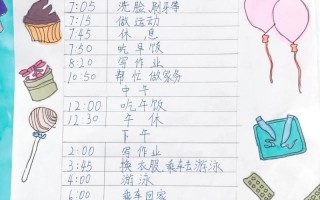 7:05 洗脸刷牙等
7:15 做运动
7:45 休息
7:50 吃早饭
8:20 写作业
10:50 帮忙做家务
中午
12:00 吃午饭
12:30 午休
下午
2:00 写作业
3:45 换衣服乘车去游泳
4:00 游泳
6:00 乘车回家